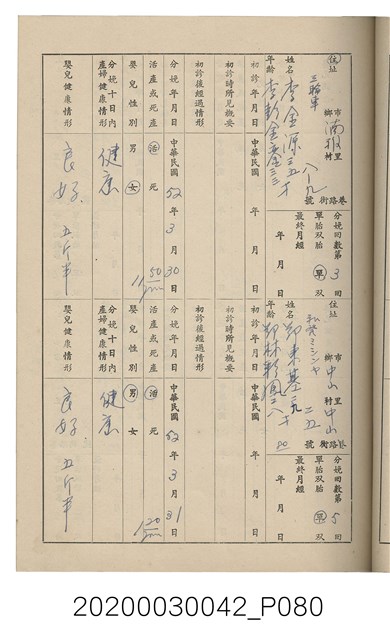 住址 市鄉 湳雅 里村 八九 巷路街 號
三輪車
姓名 李金源 三五才
年齡
分娩回數第 3 回
單胎双胎 單 双
最終月經 年 月 日
初診年月日 年 月 日
初診時所見概要
初診後經過情形
分娩年月日 中華民國 52 年 3 月 30 日
活產或死產 活 死
嬰兒性別 男 女
分娩十日內產婦健康情形 健康
嬰兒健康情形 良好 五斤半
住址 市鄉 中山 里村 中山 巷路街 二五 號
姓名 鄭東基
年齡
分娩回數第 5 回
單胎双胎 單 双
最終月經 年 月 日
初診年月日 年 月 日
初診時所見概要
初診後經過情形
分娩年月日 中華民國 52 年 3 月 31 日
活產或死產 活 死
嬰兒性別 男 女
分娩十日內產婦健康情形 健康
嬰兒健康情形 良好 五斤半
20200030042_P080